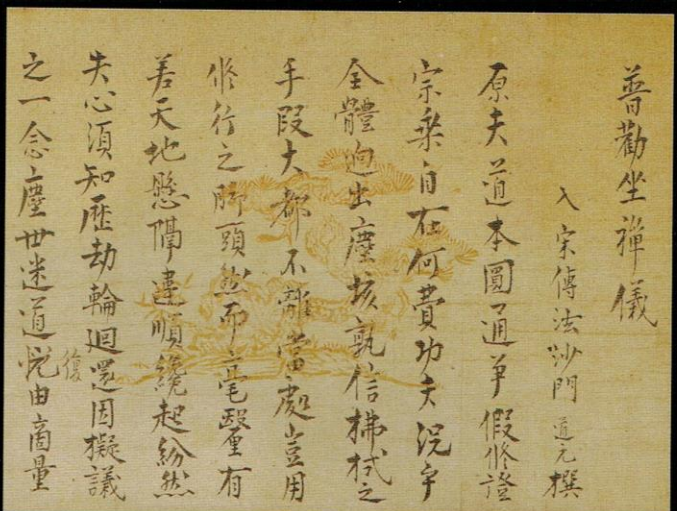 普勸坐禪儀
入宋傳法沙門道元撰
原夫道本圓通爭假修證
宗乘自在何費功夫況乎
全體逈出塵埃孰信拂拭之
手段大都不離當處豈用
修行之脚頭然而毫釐有
差天地懸隔違順纔起紛然
失心須知歷劫輪廻還因擬議
之一念塵世迷道復由商量